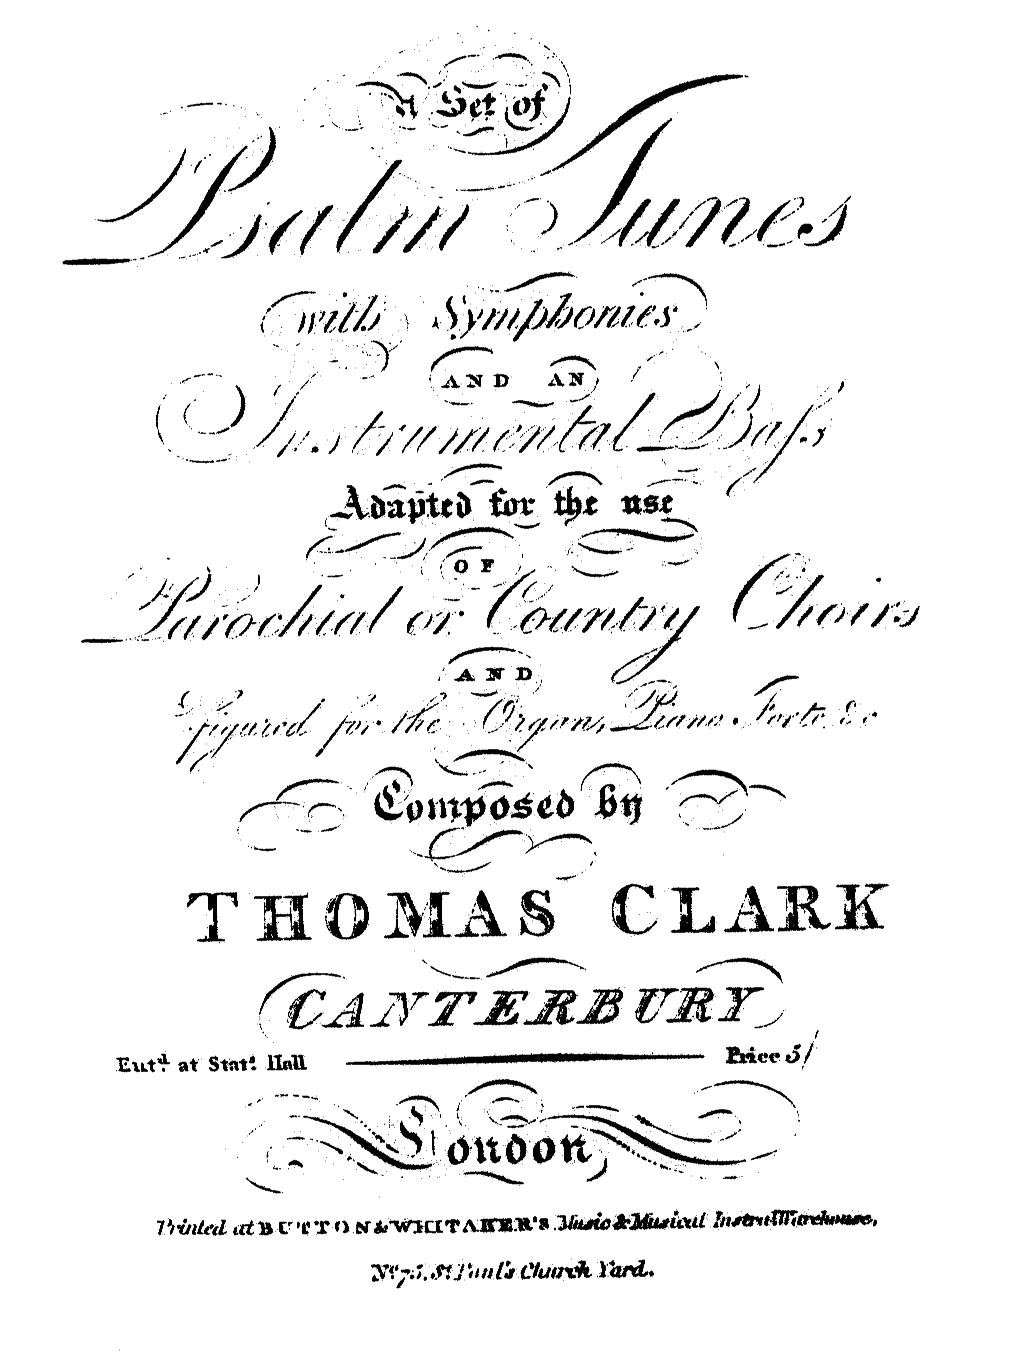 A Set of
Psalm Tunes
with Symphonies
AND AN
Instrumental Baſs
Adapted for the use
OF
Parochial or Country Choirs
AND
figured for the Organ, Piano Forte &c
Composed by
THOMAS CLARK
CANTERBURY
Entd. at Stats. Hall Price 5/
London,
Printed at BUTTON & WHITAKER'S Music & Musical Instrul Warehouse,
No. 75, St Paul's Church Yard.